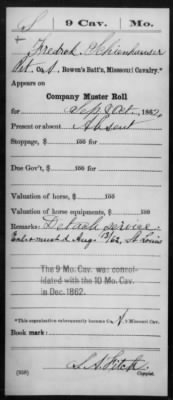 S | 9 Cav. | Mo.
Fredrck Schienhauser
Pvt., Co. A, Bowen's Batt'n, Missouri Cavalry.*
Appears on
Company Muster Roll
for Sep & Oct, 1862.
Present or absent Absent
Stoppage, $ 100 for
Due Gov't, $ 100 for
Valuation of horse, $ 100
Valuation of horse equipments, $ 100
Remarks: Detach service.
Enter mustd Aug. 13/62, St Louis
The 9 Mo. Cav. was consol-
idated with the 10 Mo. Cav.
in Dec. 1862.
*This organization subsequently became Co. A, 9 Missouri Cav.
Book mark:
S. A. Fitch
(358) Copyist.